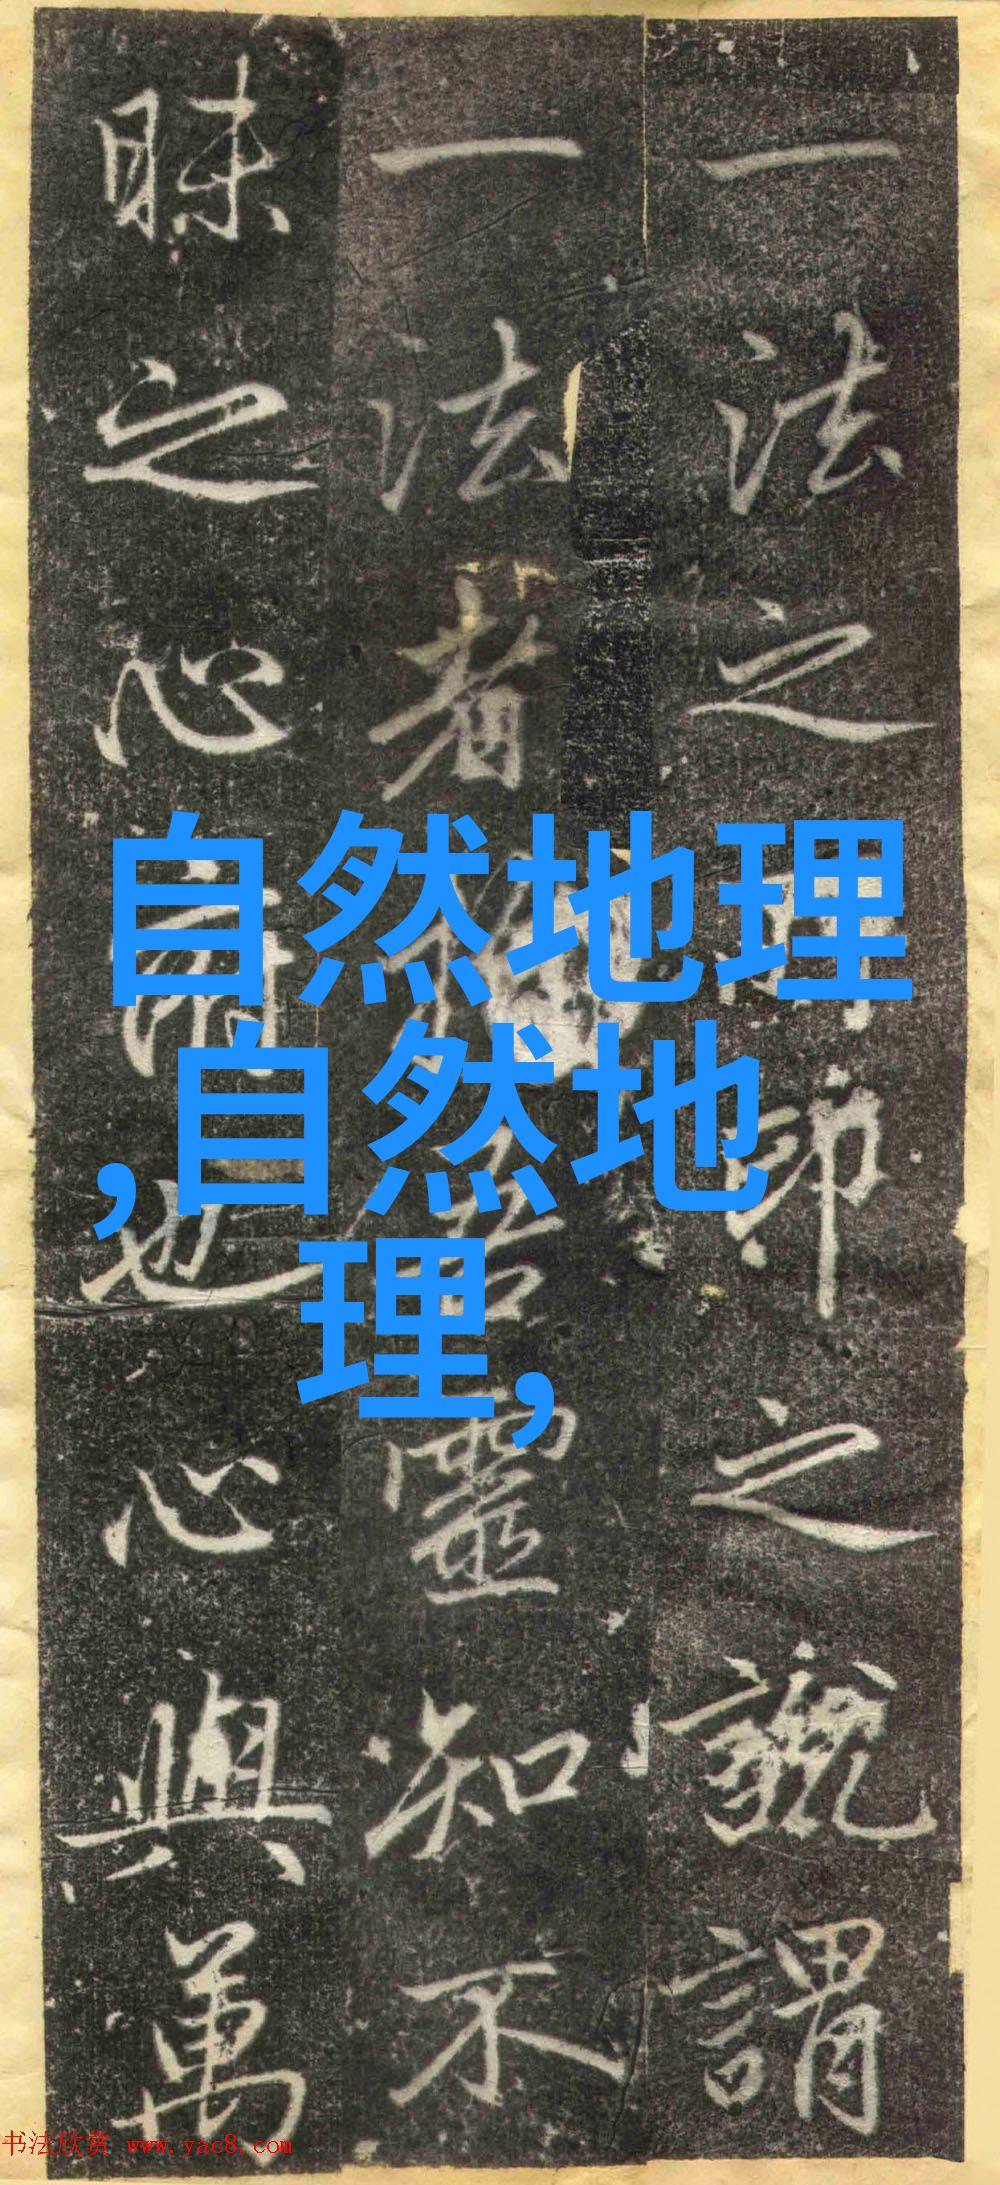 一法之印之號謂
一法者靈知不
昧之心也心與萬
自然地理
,自然地
理,
书法欣赏 www.yac8.com